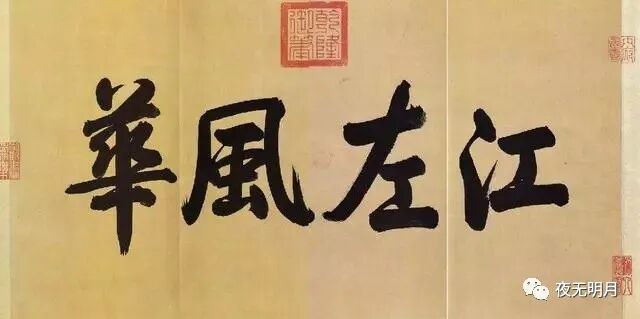 江左風華
乾隆御筆
夜无明月